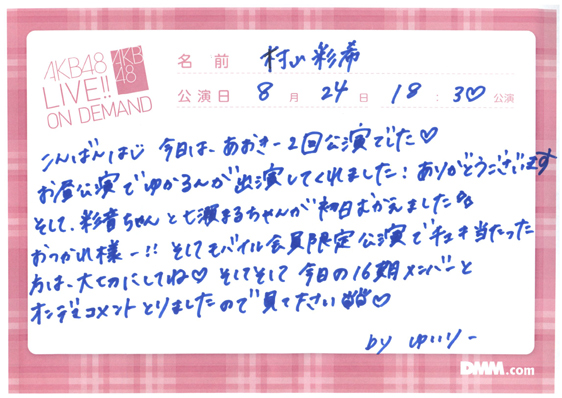 AKB48
LIVE!!
ON DEMAND
AKB
48
名前 村山彩希
公演日 8月24日 18:30♡公演
こんばんは! 今日は、あおきー2回公演でした♡
お昼公演でゆかるんが出演してくれました!ありがとうございます
そして、彩音ちゃんと七瀬まるちゃんが初日むかえました
おつかれ様ー!! そしてモバイル会員限定公演でチェキ当たった
方は、大切にしてね♡ そしてそして今日の16期メンバーと
オンデコメントとりましたので見て下さい♡
by ゆいりー
DMM.com